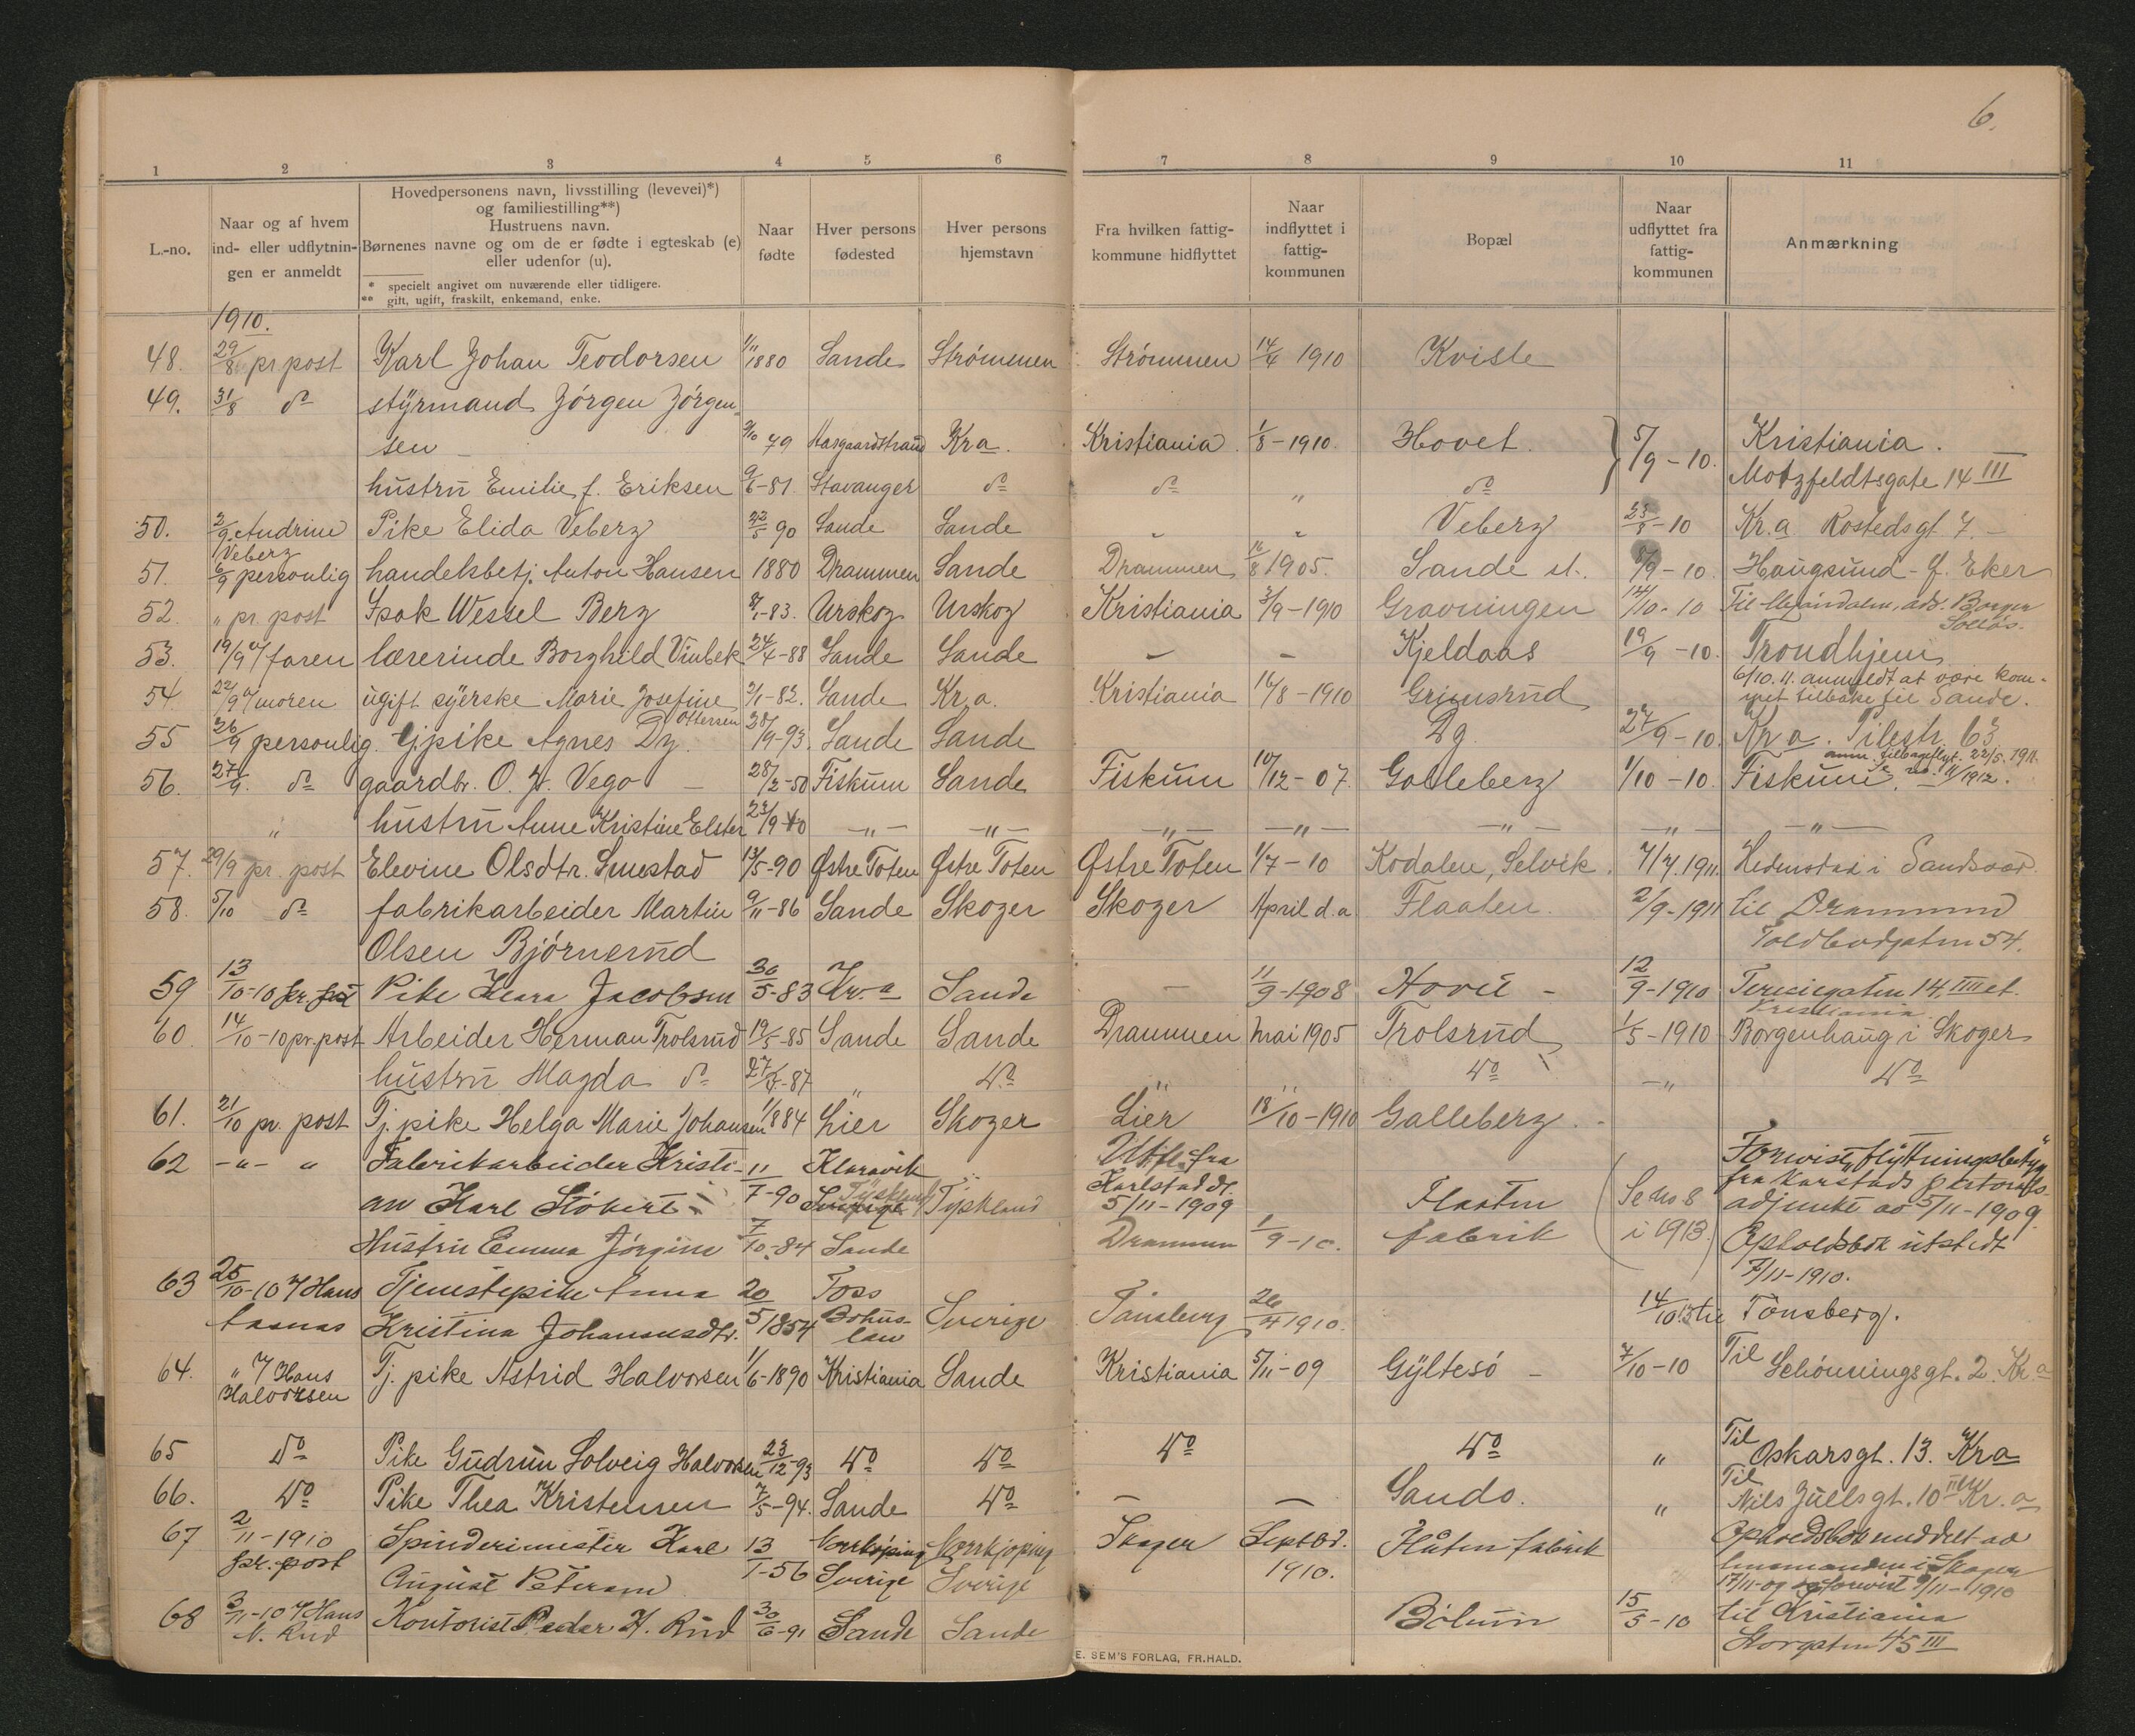 6.
1 2 3 4 5 6 7 8 9 10 11
L.-no.
Naar og af hvem
ind- eller udflytnin-
gen er anmeldt
Hovedpersonens navn, livsstilling (levevei)*)
og familiestilling**)
Hustruens navn.
Børnenes navne og om de er fødte i egteskab (e)
eller udenfor (u).
* specielt angivet om nuværende eller tidligere.
** gift, ugift, fraskilt, enkemand, enke.
Naar
fødte
Hver persons
fødested
Hver persons
hjemstavn
Fra hvilken fattig-
kommune hidflyttet
Naar
indflyttet i
fattig-
kommunen
Bopæl
Naar
udflyttet fra
fattig-
kommunen
Anmærkning
1910.
48. 29/8 pr post Karl Johan Teodorsen 1/11 1880 Sande Strømmen Strømmen 14/4 1910 Kvisle
49. 31/8 do styrmand Jörgen Jörgen-
sen 3/10 79 Aasgaardstrand Kra. Kristiania 1/8-1910. Hovet. } 5/9-10. Kristiania.
Motzfeldtsgate 14 III
hustru Emilie f. Eriksen 9/6-81. Stavanger do do " do
50. 2/9 Andrine Pike Elida Veberg 22/5 90 Sande Sande " " Veberg 23/8-10 Kr.a Rostedsgt 7.-
Veberg
51. 6/9 personlig handelsbetj. Anton Hansen 1880 Drammen Sande Drammen 16/8 1905. Sande st. 8/9-10. Haugsund - Ø. Eker
52. " pr. post Isak Wessel Berg 9/1-83. Urskog Urskog Kristiania 3/9-1910 Gravningen 14/10-10 Til Mjöndalen, ads. Borger
Sollös.
53. 19/9 v/ faren lærerinde Borghild Vinbek 24/4-88 Sande Sande - - Kjeldaas 19/9-10. Trondhjem
54. 22/9 v/ moren ugift syerske Marie Josefine 2/1-82. Sande Kr.a. Kristiania 16/8-1910 Grimsrud 6/10.11. anmeldt at være kom-
Ottersen met tilbake til Sande.
55 26/9 personlig. Tj.pike Agnes Dy. 30/9-93. Sande Sande Dy. 27/9-10. Kra. Pilestr. 63
anm. tilbageflyt. 22/5. 1911.
56. 27/9. do gaardbr. O. H. Vego - 28/2-50 Fiskum Sande Fiskum 10/12-07. Galleberg 1/10-10. Fiskum. 1912.
" hustru Anne Kristine Elster 23/9 40 -"- -"- -"- -"- -"- -"- -"-
57. 29/9 pr. post Elevine Olsdtr. Smestad 13/5-90 Østre Toten Østre Toten Østre Toten 1/7-10 Kodalen, Selvik. 7/7.1911. Hedenstad i Sandsvær.
58. 5/10 do fabrikarbeider Martin 9/11-86 Sande Skoger Skoger April d.a Flaaten. 2/9-1911 til Drammen
Olsen Bjørnerud Toldbodgaten 54.
59 13/10-10 pr. post Pike Klara Jacobsen 30/5-83 Kr.a Sande - 11/9-1908 Hovet - 12/9-1910 Teresiegaten 14. IIII et.
Kristiania.
60. 14/10-10 pr. post Arbeider Herman Trolsrud 19/5-85 Sande Sande Drammen Mai 1905 Trolsrud 1/5-1910 Borgenhaug i Skoger
hustru Magda do 27/5-87 " Do " " Do -" Do
61. 21/10 pr. post Tj. pike Helga Marie Johansen 1/8 84 Lier Skoger Lier 18/10-1910 Galleberg.
62 -"- " Fabrikarbeider Kristi- 11/7-90 Klaravik Utfl. fra Forevist flyttningsbetyg
an Karl Stökert Sverige Tyskland Tyskland Karlstad dt. Flaaten (Se no 8 fra Karstads pastorats
5/11-1909 i 1913.) adjunkt av 5/11-1909.
Hustru Emma Jørgine 7/10-84 Sande Drammen 1/9-10. fabrik Opholdsbok utstedt
7/11-1910.
63 25/10-10 v/ Hans Tjenestepike Anna 20/5 1854 Toss
Aasnæs Kristina Johannesdtr. Bohus- Sverige Tönsberg 26/4 1910. 14/10.13 til Tönsberg.
len
64. " v/ Hans Tj. pike Astrid Halvorsen 1/6-1890 Kristiania Sande Kristiania 5/11-09 Gyltesö - 7/10-10 Til
Halvorsen Schönningsgt. 2. Kr.a
65 Do Pike Gudrun Solveig Halvorsen 23/12-93 Do Do Do Do " Til Oskarsgt. 13. Kra
66. Do Pike Thea Kristensen 7/5-94. Sande Do - - Sando. " Til Nils Juelsgt. 10 Kr.a
67 2/11-1910 Spinderimester Karl 13/1-56 Norrköping Norrkjøping Skoger Septbr. Flåten fabrik Opholdsbok meddelt av
pr. post August Peterson Sverige Sverige 1910. lensmanden i Skoger
17/11-09 forevist 9/11-1910
68 3/11-10 v/ Hans Kontorist Peder H. Rud 30/6-91 Sande Sande Bölum 15/5-10 til Kristiania
N. Rud Storgaten 45 III
E. SEM'S FORLAG, FR.HALD.